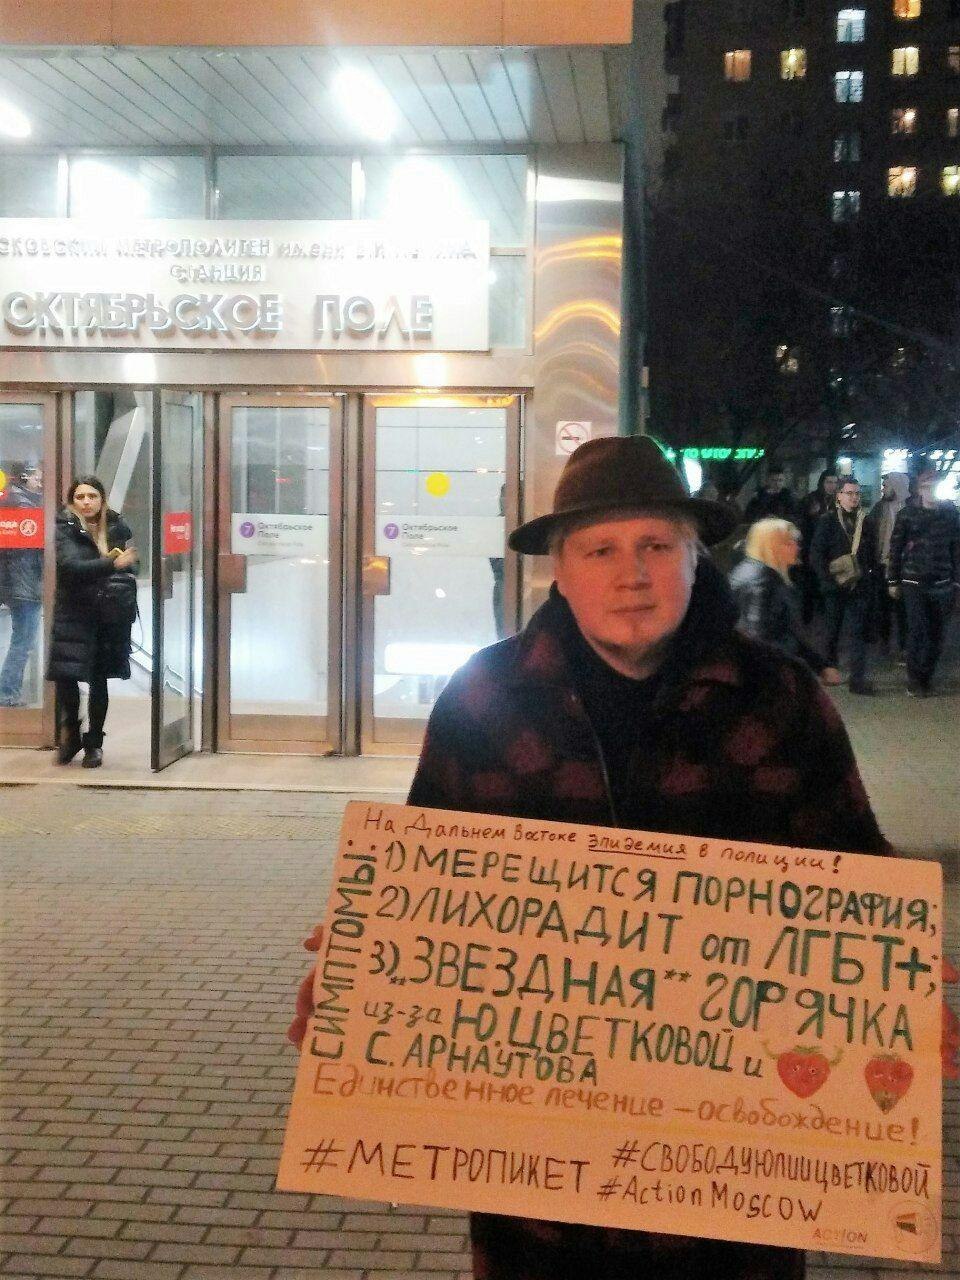 МЕТРОПОЛИТЕН ИМЕНИ
СТАНЦИЯ
ОКТЯБРЬСКОЕ ПОЛЕ
7 Октябрьское Поле
7 Октябрьское Поле
На Дальнем Востоке эпидемия в полиции!
СИМПТОМЫ:
1) МЕРЕЩИТСЯ ПОРНОГРАФИЯ;
2) ЛИХОРАДИТ от ЛГБТ+;
3) "ЗВЕЗДНАЯ" ГОРЯЧКА
из-за Ю. ЦВЕТКОВОЙ и
С. АРНАУТОВА
Единственное лечение – освобождение!
#МЕТРОПИКЕТ #СВОБОДУЮЛИИЦВЕТКОВОЙ
#ActionMoscow
ACTION